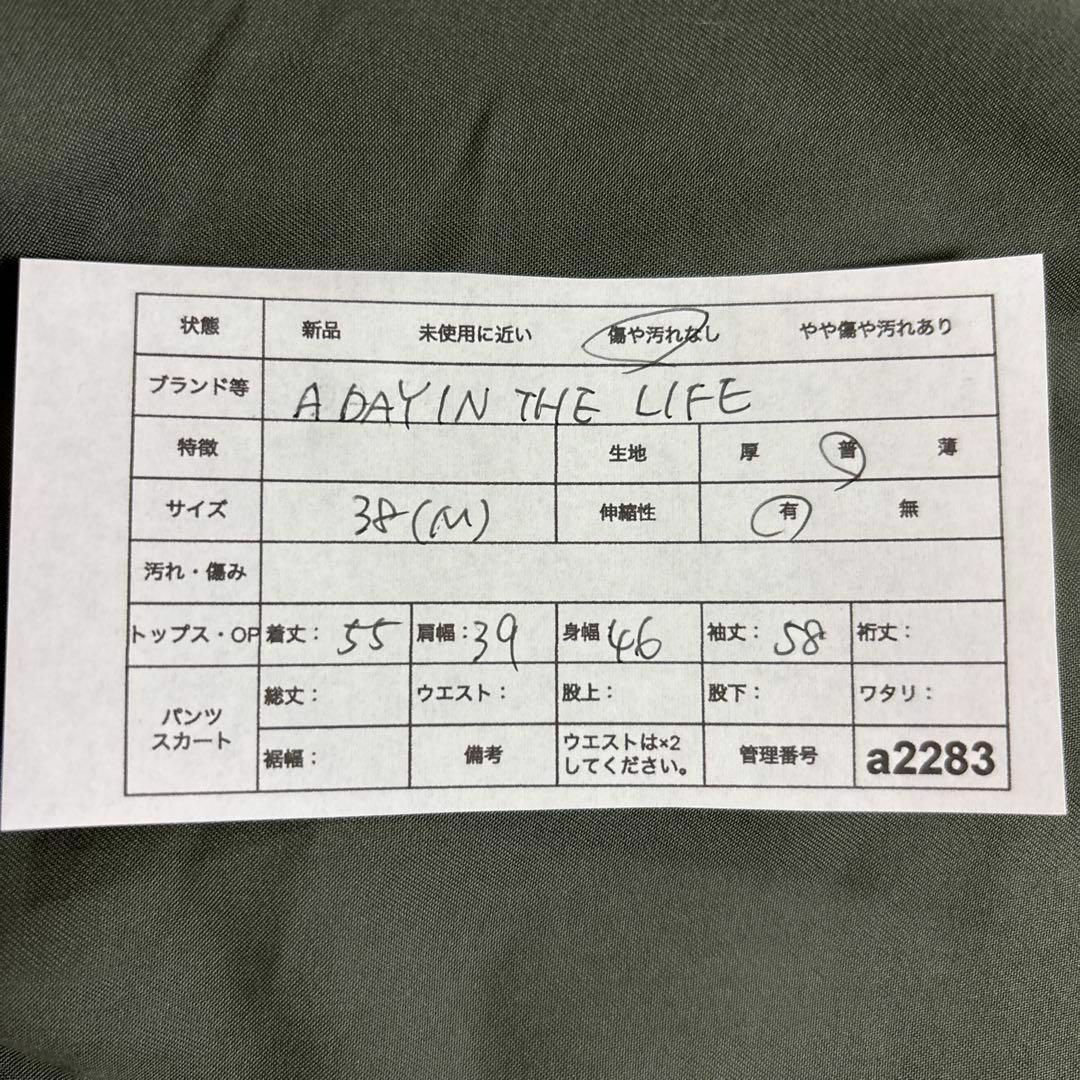 状態 新品 未使用に近い 傷や汚れなし やや傷や汚れあり
ブランド等 A DAY IN THE LIFE
特徴 生地 厚 普 薄
サイズ 38(M) 伸縮性 有 無
汚れ・傷み
トップス・OP 着丈: 55 肩幅:39 身幅 46 袖丈: 58 裄丈:
パンツ スカート 総丈: ウエスト: 股上: 股下: ワタリ:
裾幅: 備考 ウエストは×2 してください。 管理番号 a2283